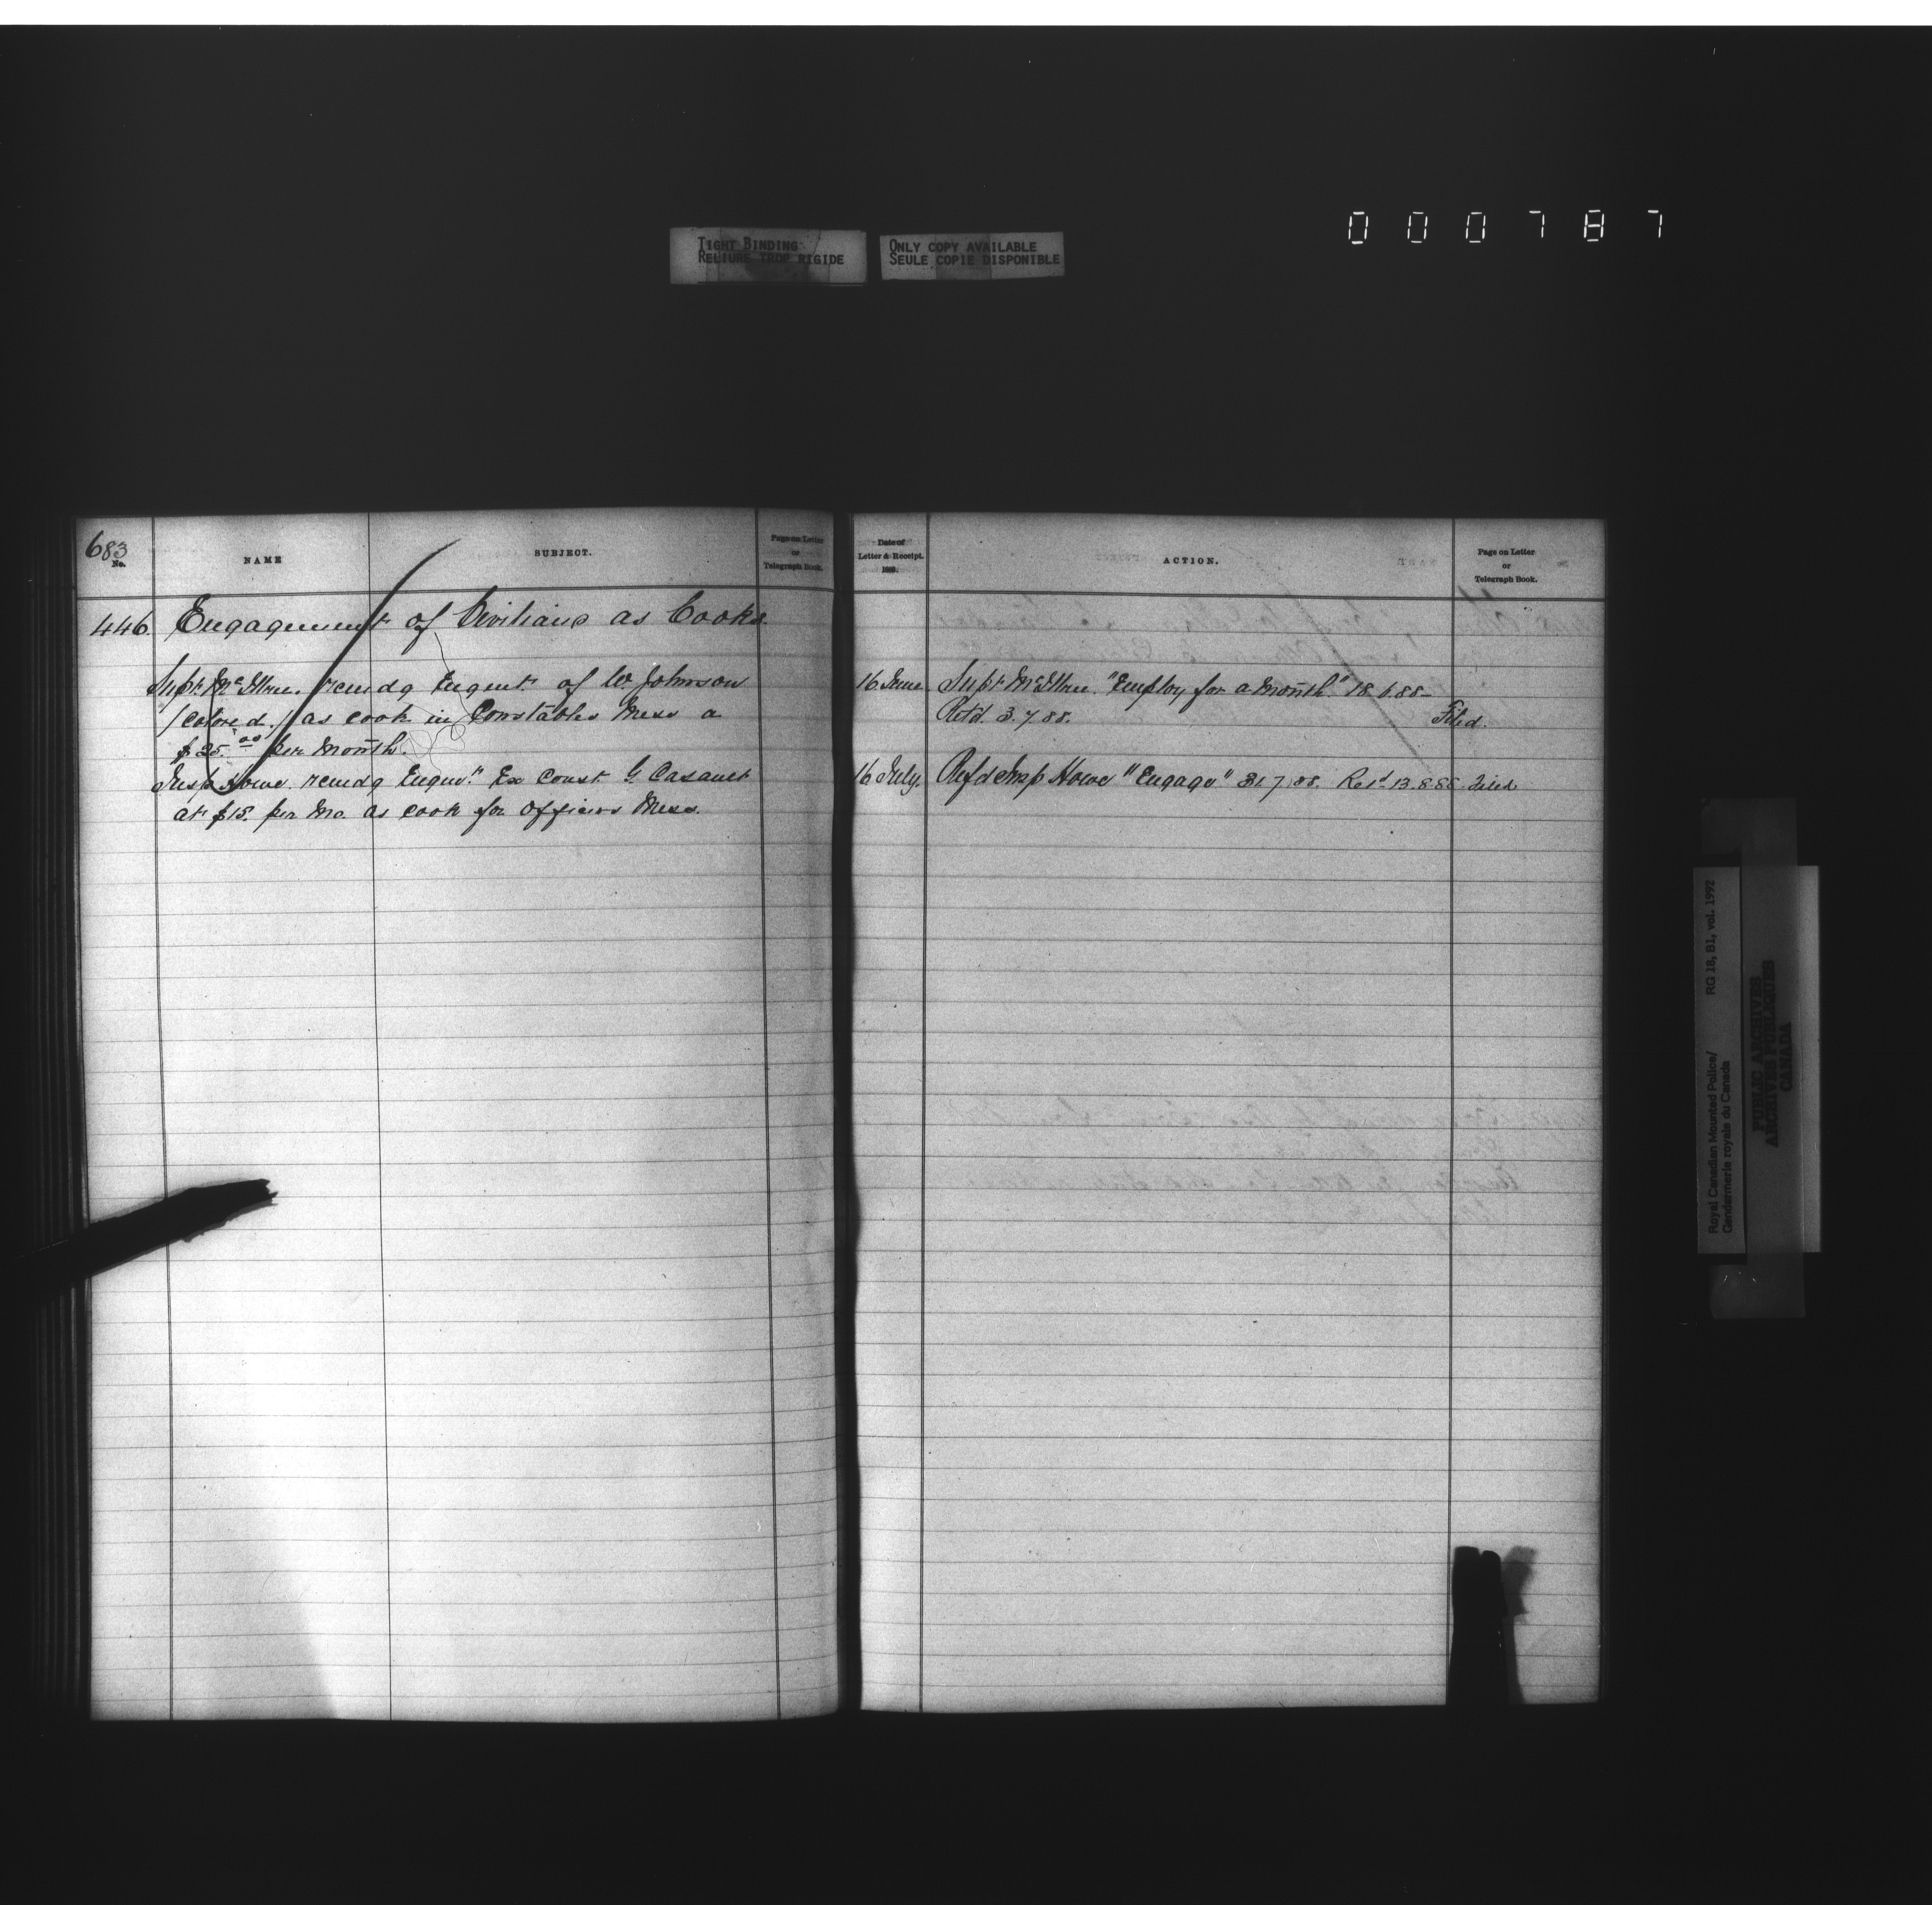 000787
TIGHT BINDING
RELIURE TROP RIGIDE
ONLY COPY AVAILABLE
SEULE COPIE DISPONIBLE
683
No.
NAME
SUBJECT.
Page on Letter
or
Telegraph Book.
446. Engagement of Civilians as Cooks.
Supt. McIllree. recmdg Engmt. of W. Johnson
(colored.) as cook in Constables Mess a
$25.00 per month.
Insp Howe. recmdg Engmt. Ex Const. G. Casault
at $15. per mo. as cook for Officers Mess.
Date of
Letter & Receipt.
188
ACTION.
Page on Letter
or
Telegraph Book.
16 June Supt McIllree. "Employ for a month." 18.6.88-
Retd. 3.7.88. Filed.
16 July. Refd Insp Howe "Engage" 31.7.88. Retd 13.8.88. Filed
Royal Canadian Mounted Police/ RG 18, B1, vol. 1992
Gendarmerie royale du Canada
PUBLIC ARCHIVES
ARCHIVES PUBLIQUES
CANADA